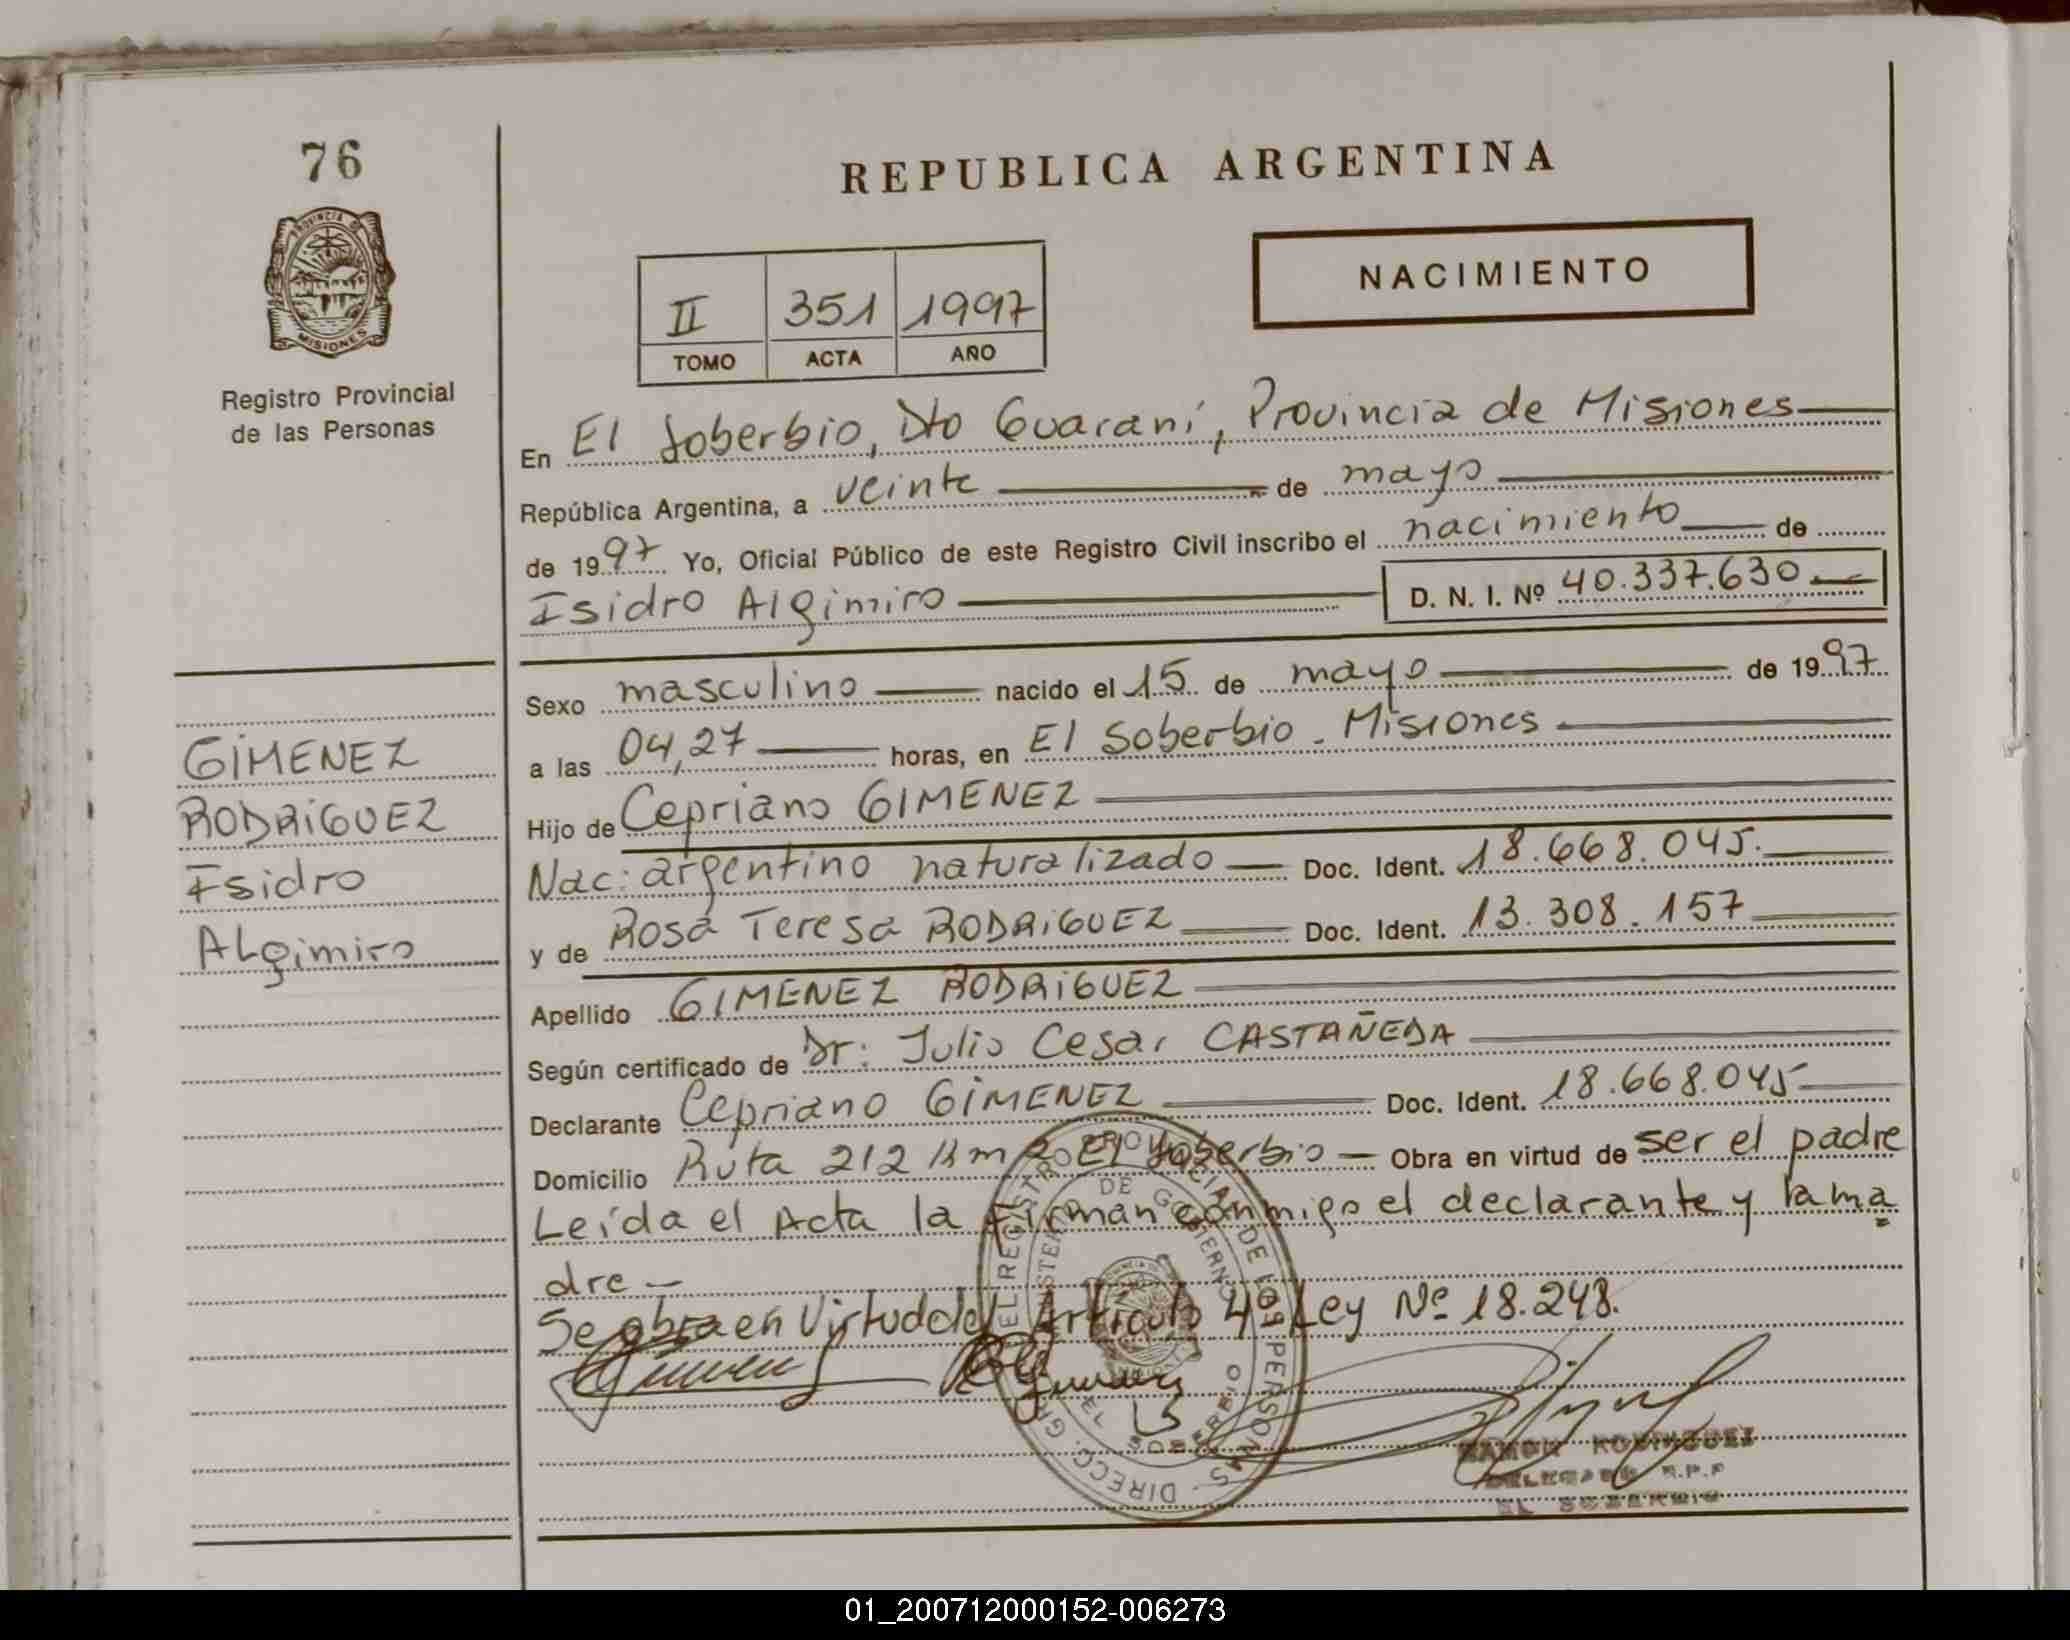 76
REPUBLICA ARGENTINA
PROVINCIA DE
MISIONES
Registro Provincial
de las Personas
NACIMIENTO
II 351 1997
TOMO ACTA AÑO
En El Soberbio, Dto Guaraní, Provincia de Misiones
República Argentina, a veinte de mayo
de 1997 Yo, Oficial Público de este Registro Civil inscribo el nacimiento de
Isidro Algimiro D. N. I. Nº 40.337.630
Sexo masculino nacido el 15 de mayo de 1997
a las 04,27 horas, en El Soberbio - Misiones
Hijo de Cepriano GIMENEZ
Nac: argentino naturalizado Doc. Ident. 18.668.045.
y de Rosa Teresa RODRiGUEZ Doc. Ident. 13.308.157
Apellido GIMENEZ RODRiGUEZ
Según certificado de Dr: Julio Cesar CASTAÑEDA
Declarante Cepriano GiMENEZ Doc. Ident. 18.668.045
Domicilio Ruta 212 Km 2 El Soberbio - Obra en virtud de ser el padre
Leída el Acta la firman conmigo el declarante y la ma
dre -
Se obra en Virtud del Artículo 4º Ley Nº 18.248.
GiMENEZ
RODRiGUEZ
Isidro
ALgimiro
DIRECC. GRAL. DEL REGISTRO PROVINCIAL DE LAS PERSONAS
DE GOBIERNO
EL SOBERBIO
RAMON RODRIGUEZ
DELEGADO R.P.P
EL SOBERBIO
01_200712000152-006273